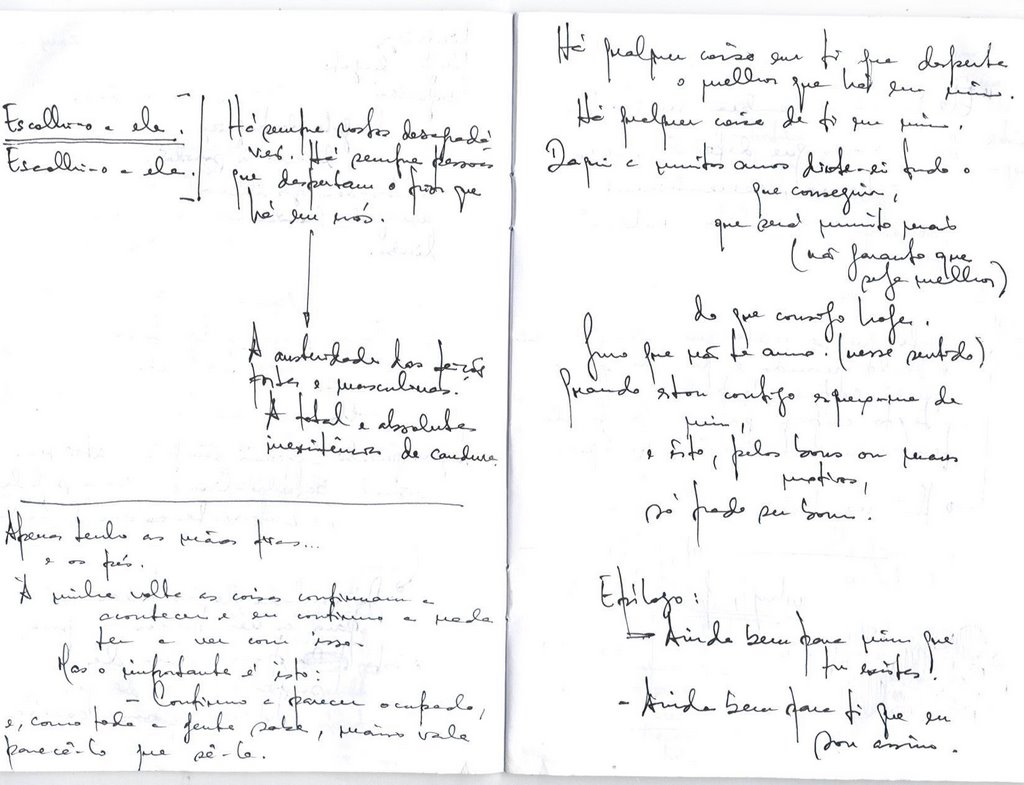 Escolhi-o a ele.
Escolhi-o a ele.
Há sempre rostos desagradá
veis. Há sempre pessoas
que despertam o pior que
há em nós.
A austeridade das feições
fortes e masculinas.
A total e absoluta
inexistência de candura.
Apenas tenho as mãos frias...
e os pés.
À minha volta as coisas continuam a
acontecer e eu continuo a nada
ter a ver com isso.
Mas o importante é isto:
- Continuo a parecer ocupado,
e, como toda a gente sabe, mais vale
parecê-lo que sê-lo.
Há qualquer coisa em ti que desperta
o melhor que há em mim.
Há qualquer coisa de ti em mim.
Daqui a muitos anos dir-te-ei tudo o
que conseguir,
que será muito mais
(não garanto que
seja melhor)
do que consigo hoje.
Juro que não te amo. (nesse sentido)
Quando estou contigo esqueço-me de
mim,
e isto, pelos bons ou maus
motivos,
só pode ser bom.
Epílogo:
Ainda bem para mim que
tu existes.
- Ainda bem para ti que eu
sou assim.